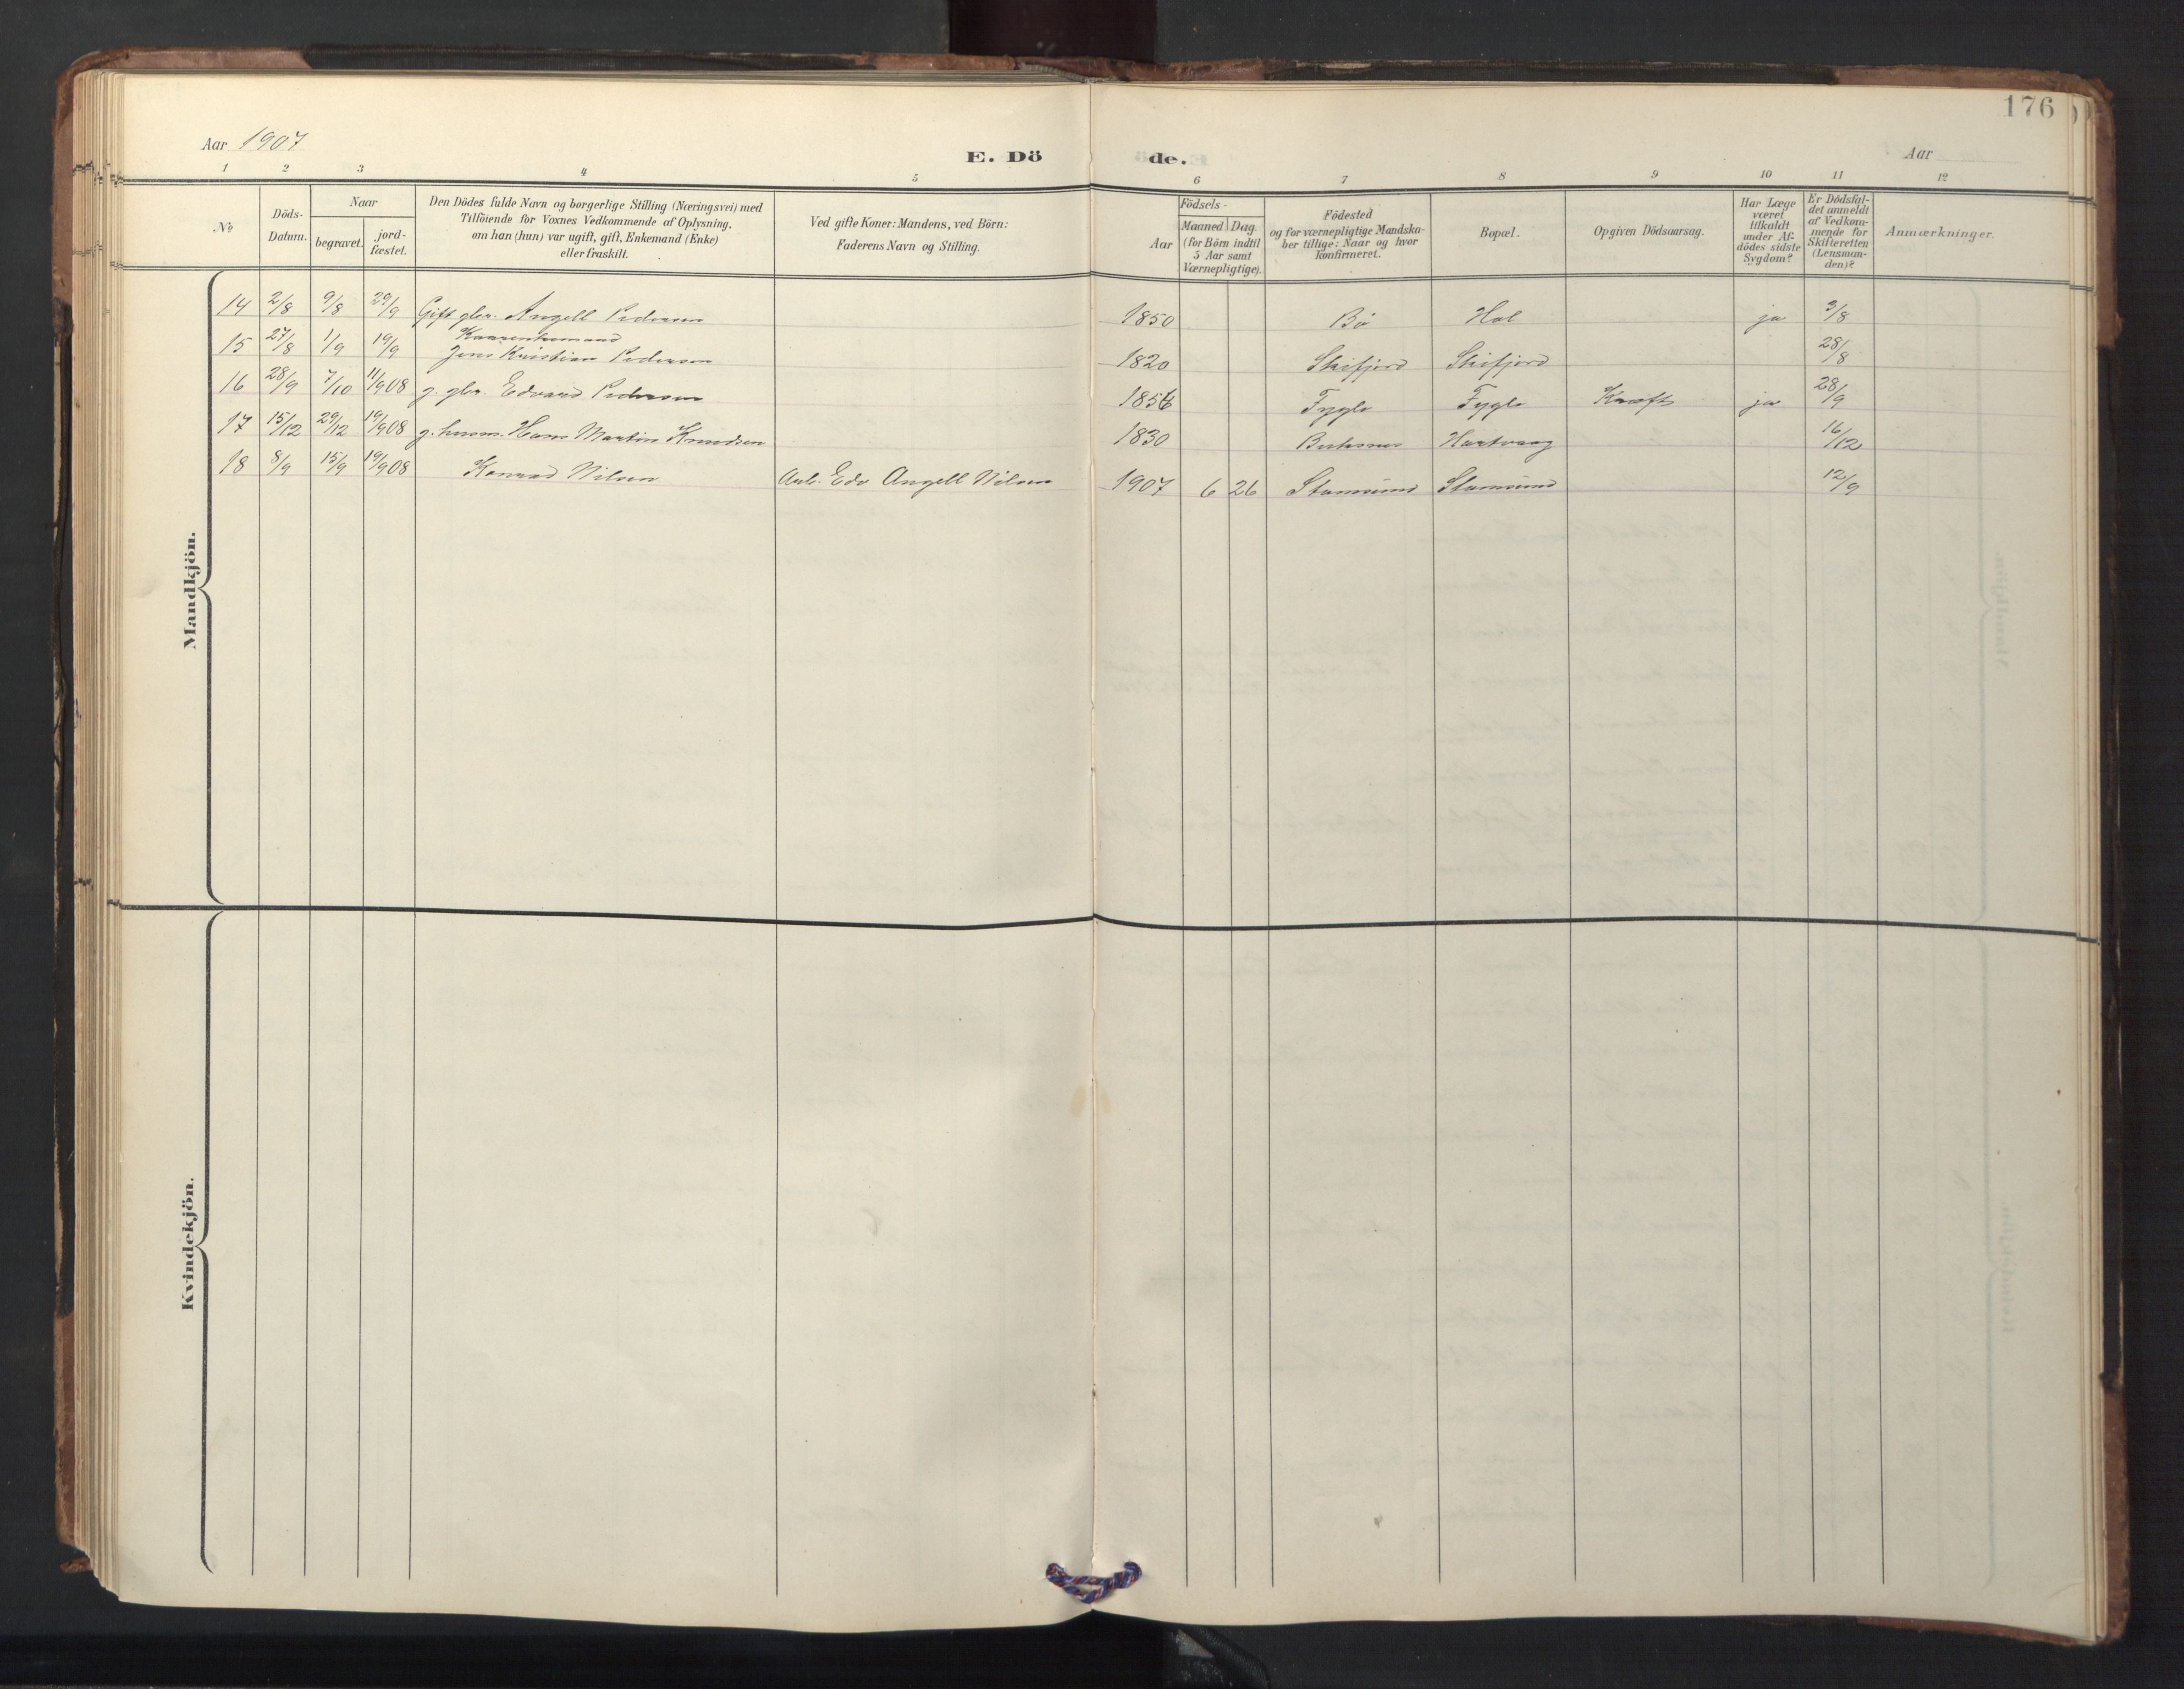 176
Aar 1907
E. Dö de.
Aar
1 2 3 4 5 6 7 8 9 10 11 12
No
Döds-
Datum.
Naar
begravet.
jord-
fæstet.
Den Dödes fulde Navn og borgerlige Stilling (Næringsvei) med
Tilföiende for Voxnes Vedkommende af Oplysning,
om han (hun) var ugift, gift, Enkemand (Enke)
eller fraskilt.
Ved gifte Koner: Mandens, ved Börn:
Faderens Navn og Stilling.
Födsels-
Aar
Maaned Dag.
(for Börn indtil
5 Aar samt
Værnepligtige).
Födested
og for værnepligtige Mandska-
ber tillige: Naar og hvor
konfirmeret.
Bopæl.
Opgiven Dödsaarsag.
Har Læge
været
tilkaldt
under Af-
dödes sidste
Sygdom?
Er Dödsfal-
det anmeldt
af Vedkom-
mende for
Skifteretten
(Lensman-
den)?
Anmærkninger.
Mandkjön.
14 2/8 9/8 29/9 Gift gbr. Angell Pedersen 1850 Bö Hol ja 3/8
Kaarenhusmand
15 27/8 1/9 19/9 Jens Kristian Pedersen 1820 Skifjord Skifjord 28/8
16 28/9 7/10 11/9 08 g. gbr. Edvard Pedersen 1856 Fygle Fygle Kræft ja 28/9
17 15/12 29/12 19/9 08 g. husm. Hans Martin Knudsen 1830 Buksnes Hartvaag 16/12
18 8/9 15/9 19/9 08 Konrad Nilsen Arb. Edv Angell Nilsen 1907 6 26 Stamsund Stamsund 12/9
Kvindekjön.